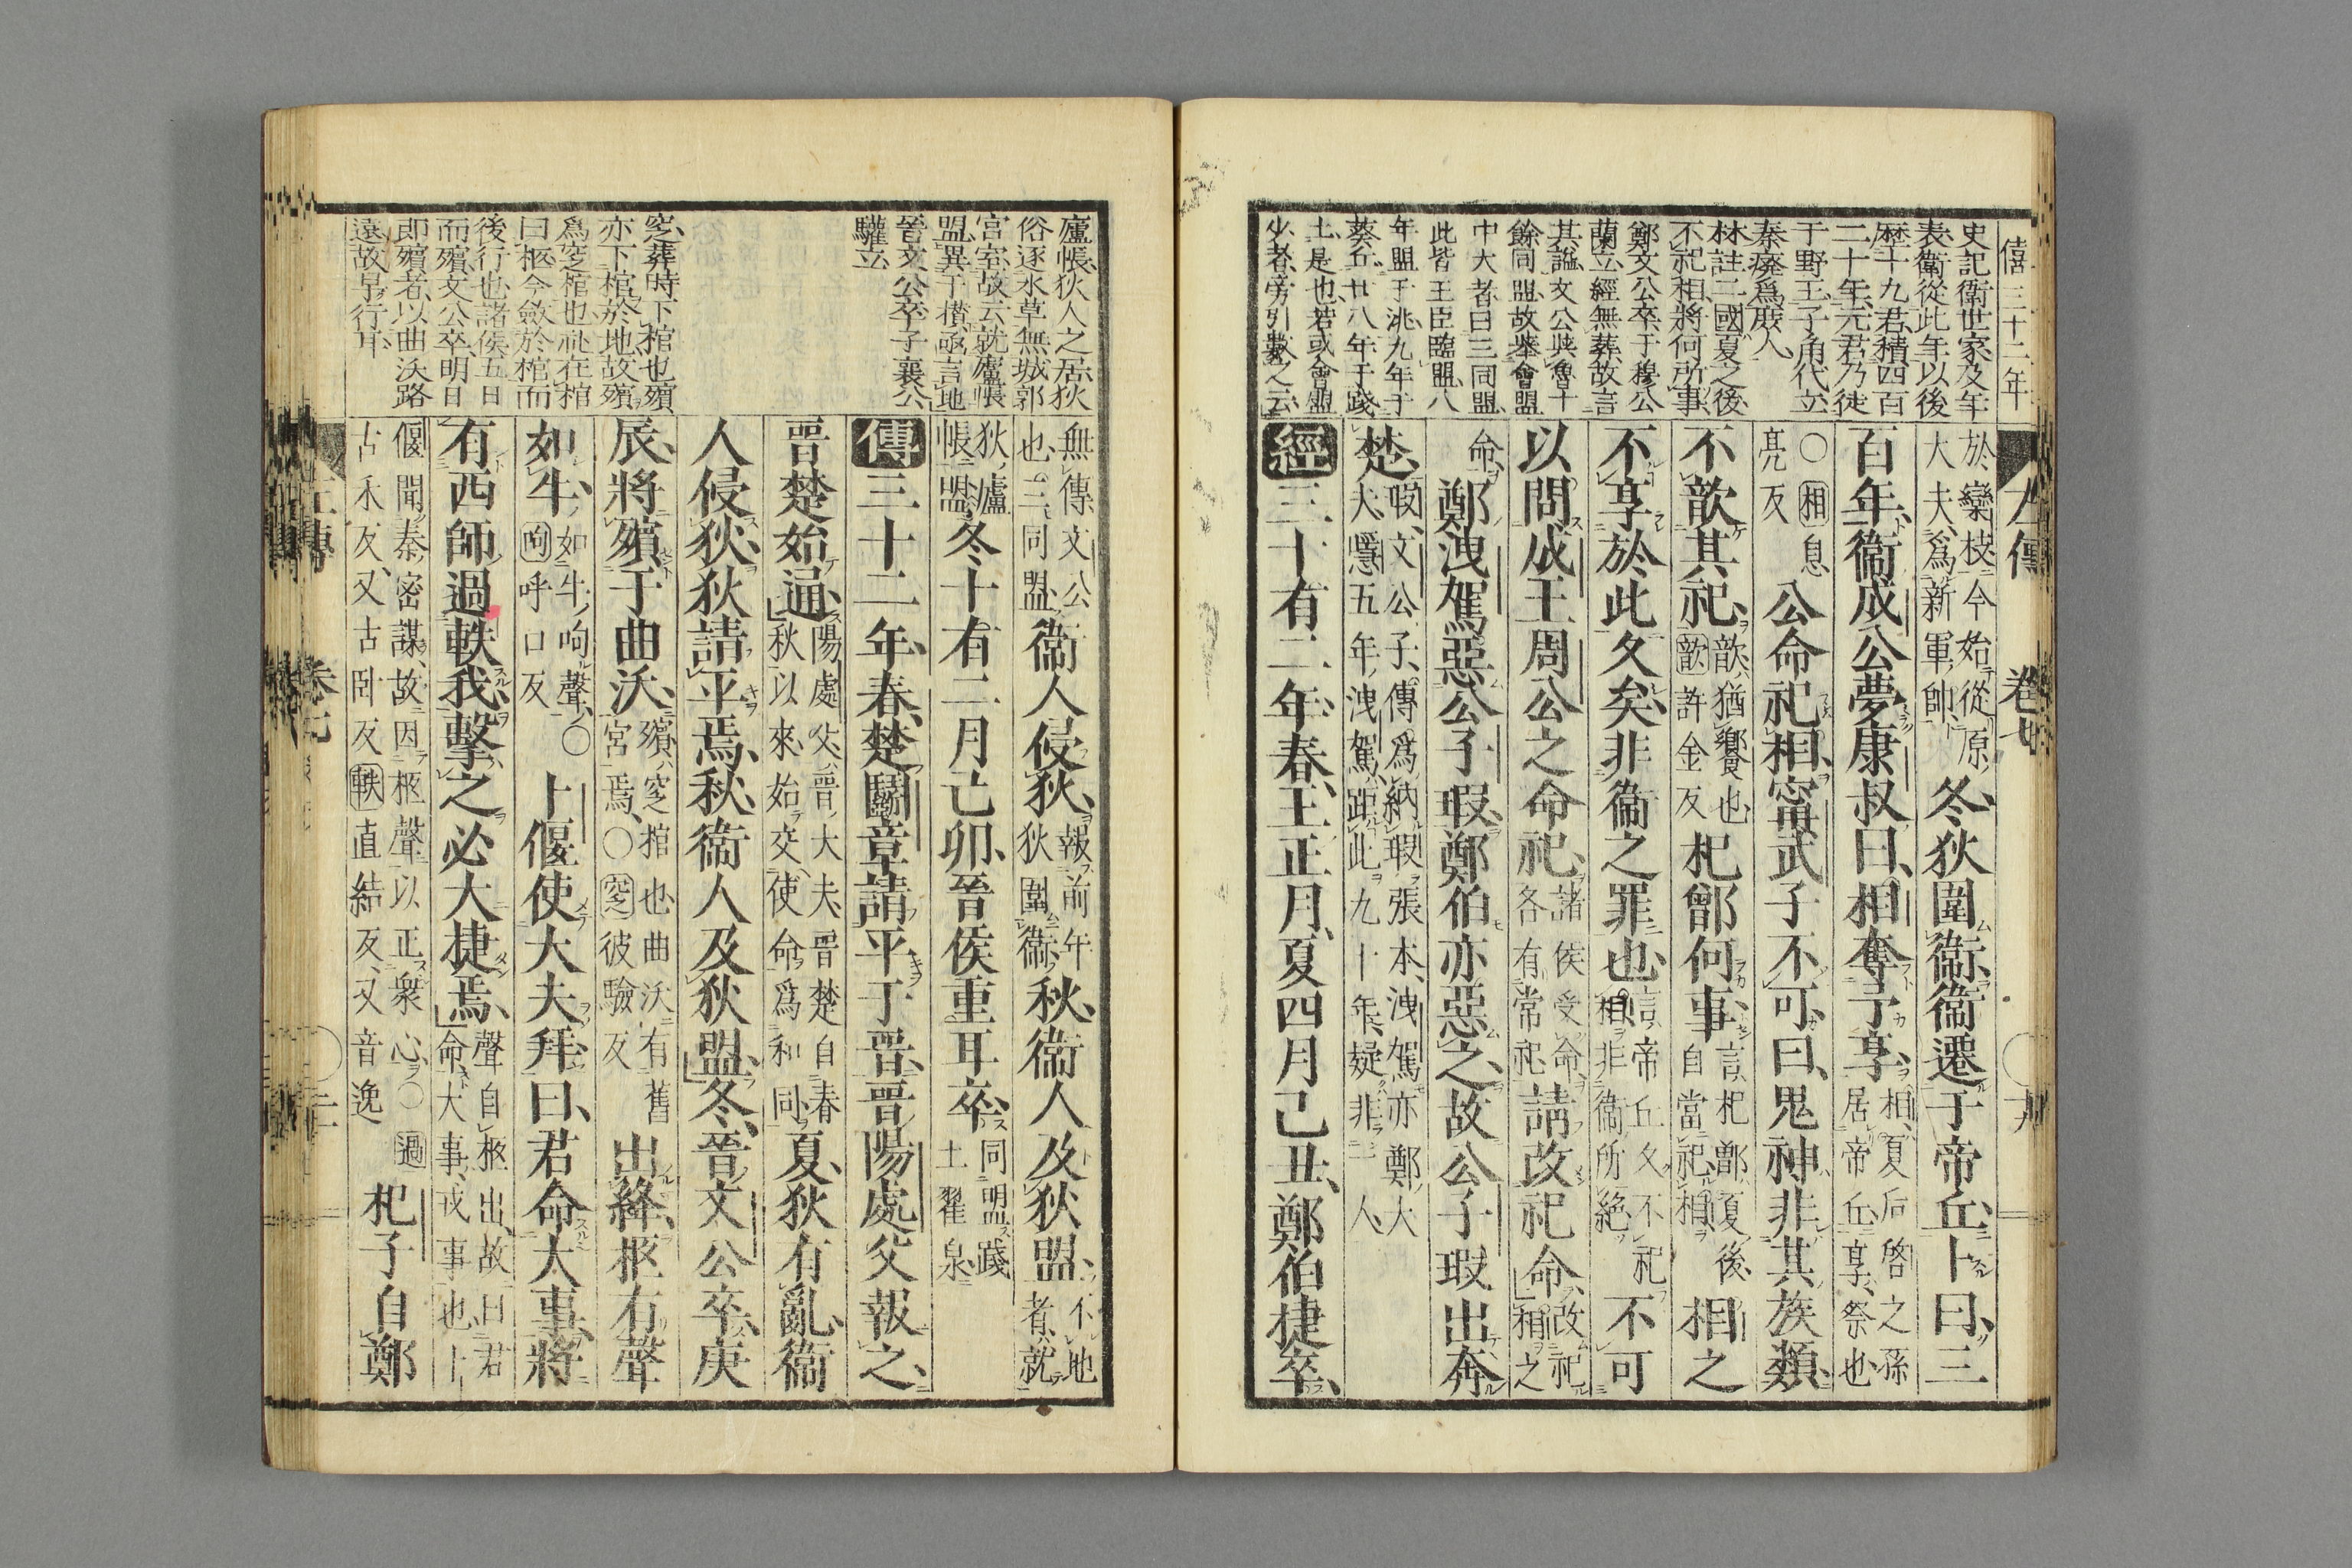 僖三十二年
史記衛世家及年
表衛從此年以後
歷十九君積四百
二十年元君乃徙
于野王子角代立
秦廢爲庶人
林註二國夏之後
不祀相將何所事
鄭文公卒于穆公
蘭立經無葬故言
其謚文公與魯十
餘同盟故舉會盟
中大者曰三同盟
此皆王臣臨盟八
年盟于洮九年于
葵丘廿八年于踐
土是也若或會盟
少者旁引數之云
左傳 卷七 十九
於欒枝今始從原大夫爲新軍帥冬狄圍衛衛遷于帝丘卜曰三
百年衛成公夢康叔曰相奪予享相夏后啓之孫居帝丘享祭也
○相息亮反公命祀相甯武子不可曰鬼神非其族類
不歆其祀歆猶饗也歆許金反杞鄫何事言杞鄫夏後自當祀相相之
不享於此久矣非衛之罪也言帝丘久不祀相非衛所絶不可
以間成王周公之命祀諸侯受命各有常祀請改祀命改祀相之
命鄭洩駕惡公子瑕鄭伯亦惡之故公子瑕出奔
楚瑕文公子傳爲納瑕張本洩駕亦鄭大夫隱五年洩駕距此九十年疑非一人
經三十有二年春王正月夏四月己丑鄭伯捷卒
廬帳狄人之居狄
俗逐水草無城郭
宮室故云就廬帳
盟異于横函言地
晉文公卒子襄公
驩立
窆葬時下棺也殯
亦下棺於地故殯
爲窆棺也礼在棺
曰柩今斂於棺而
後行也諸侯五日
而殯文公卒明日
即殯者以曲沃路
遠故早行耳
無傳文公也三同盟衛人侵狄報前年狄圍衛秋衛人及狄盟不地者就
狄廬帳盟冬十有二月己卯晉侯重耳卒同盟踐土翟泉
傳三十二年春楚鬬章請平于晉晉陽處父報之
晉楚始通陽處父晉大夫晉楚自春秋以來始交使命爲和同夏狄有亂衛
人侵狄狄請平焉秋衛人及狄盟冬晉文公卒庚
辰將殯于曲沃殯窆棺也曲沃有舊宮焉○窆彼驗反出絳柩有聲
如牛如牛呴聲○呴呼口反卜偃使大夫拜曰君命大事將
有西師過軼我擊之必大捷焉聲自柩出故曰君命大事戎事也卜
偃聞秦密謀故因柩聲以正衆心○過古禾反又古卧反軼直結反又音逸杞子自鄭